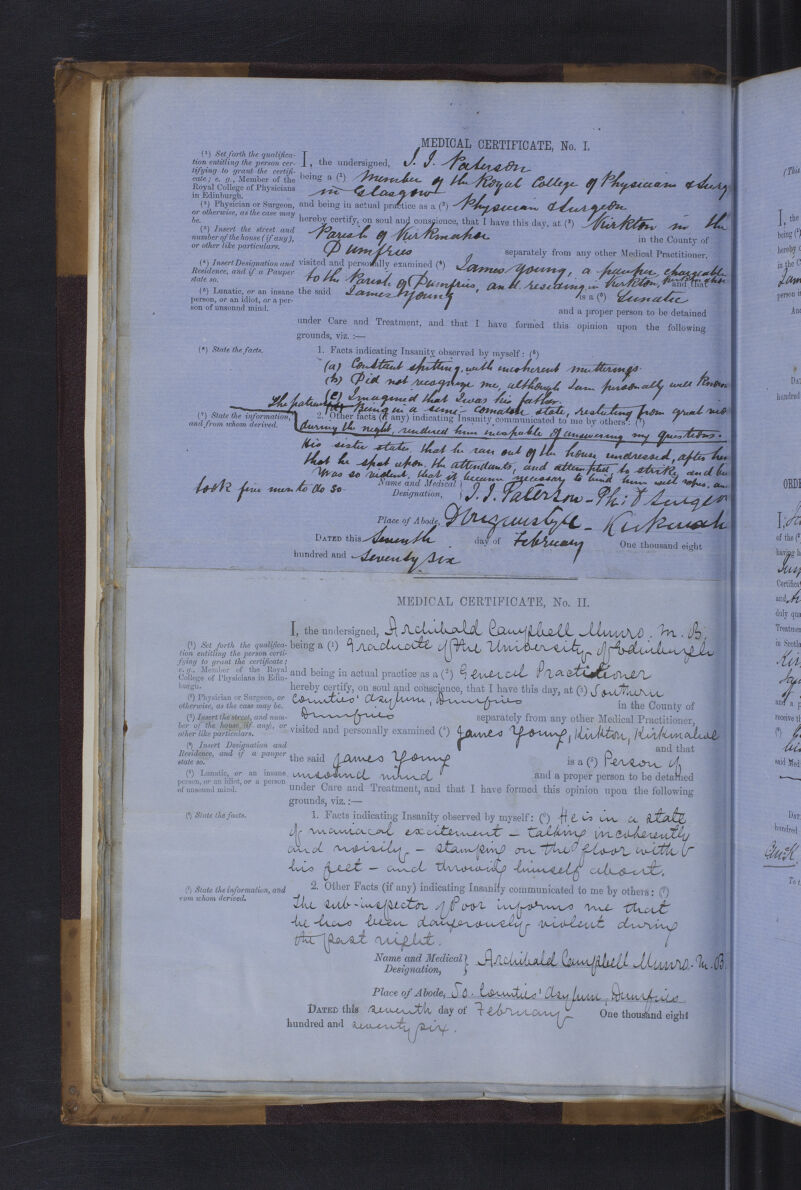 MEDICAL CERTIFICATE, No. I.
(¹) Set forth the qualifica-
tion entitling the person cer-
tifying to grant the certifi-
cate; e. g., Member of the
Royal College of Physicians
in Edinburgh.
(²) Physician or Surgeon,
or otherwise, as the case may
be.
(³) Insert the street and
number of the house (if any),
or other like particulars.
(⁴) Insert Designation and
Residence, and if a Pauper
state so.
(⁵) Lunatic, or an insane
person, or an idiot, or a per-
son of unsound mind.
(⁶) State the facts.
(⁷) State the information,
and from whom derived.
I, the undersigned, J. J. Paterson
being a (¹) Member of the Royal College of Physicians & Surg
in Glasgow
and being in actual practice as a (²) Physician & Surgeon
hereby certify, on soul and conscience, that I have this day, at (³) Kirkton in the
Parish of Kirkmahoe in the County of
Dumfries separately from any other Medical Practitioner,
visited and personally examined (⁴) James Young, a pauper, chargeable
to the Parish of Dumfries, and residing in Kirkton, Kirkmahoe and that
the said James Young is a (⁵) Lunatic
and a proper person to be detained
under Care and Treatment, and that I have formed this opinion upon the following
grounds, viz. :—
1. Facts indicating Insanity observed by myself: (⁶)
(a) Constant spitting, with incoherent mutterings.
(b) Did not recognize me, although I am personally well known
(c) Imagined that I was his father.
The patient (d) Being in a semi-comatose state, resulting from great
2. Other facts (if any) indicating Insanity communicated to me by others: (⁷)
during the night, rendered him incapable of answering my questions.
His sister states, that he ran out of the house undressed, after her
that he spat upon the attendants, and attempted to strike, and he
was so violent, that it became necessary to bind him with ropes, an
took five men to do so.
Name and Medical Designation, J. J. Paterson - Ph: & Surgeo
Place of Abode, Kirkmah
DATED this Seventh day of February One thousand eight
hundred and Seventy six
MEDICAL CERTIFICATE, No. II.
(¹) Set forth the qualifica-
tion entitling the person certi-
fying to grant the certificate;
e. g., Member of the Royal
College of Physicians in Edin-
burgh.
(²) Physician or Surgeon, or
otherwise, as the case may be.
(³) Insert the street, and num-
ber of the house, (if any), or
other like particulars.
(⁴) Insert Designation and
Residence, and if a pauper
state so.
(⁵) Lunatic, or an insane
person, or an idiot, or a person
of unsound mind.
(⁶) State the facts.
(⁷) State the information, and
rom whom derived.
I, the undersigned, Archibald Campbell Munro, M. B.
being a (¹) Graduate of the University of Edinburgh
and being in actual practice as a (²) General Practitioner
hereby certify, on soul and conscience, that I have this day, at (³) Southern
Counties' Asylum, Dumfries in the County of
Dumfries separately from any other Medical Practitioner,
visited and personally examined (⁴) James Young, Kirkton, Kirkmahoe
and that
the said James Young is a (⁵) Person of
unsound mind and a proper person to be detained
under Care and Treatment, and that I have formed this opinion upon the following
grounds, viz. :—
1. Facts indicating Insanity observed by myself: (⁶) He is in a state
of maniacal excitement - talking incoherently
and noisily - stamping on the floor with
his feet - and throwing himself about.
2. Other Facts (if any) indicating Insanity communicated to me by others: (⁷)
The sub-inspector of Poor informs me that
he has been dangerously violent during
the past night.
Name and Medical Designation, Archibald Campbell Munro. M. B.
Place of Abode, So. Counties' Asylum, Dumfries
DATED this seventh day of February One thousand eight
hundred and seventy six.